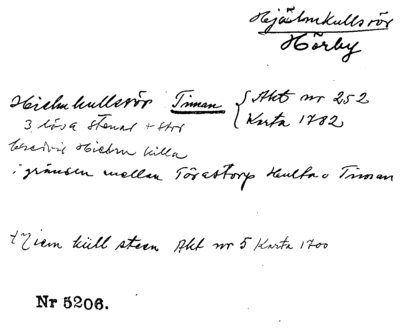 Hjälmkullsrör
Hörby
Hielmkullsrör Timan { Akt nr 252
3 lösa stenar + str { Karta 1782
Hielm källa
i gränsen mellan Torastorp Hulta o Timan
küll steen Akt nr 5 Karta 1700
Nr 5206.